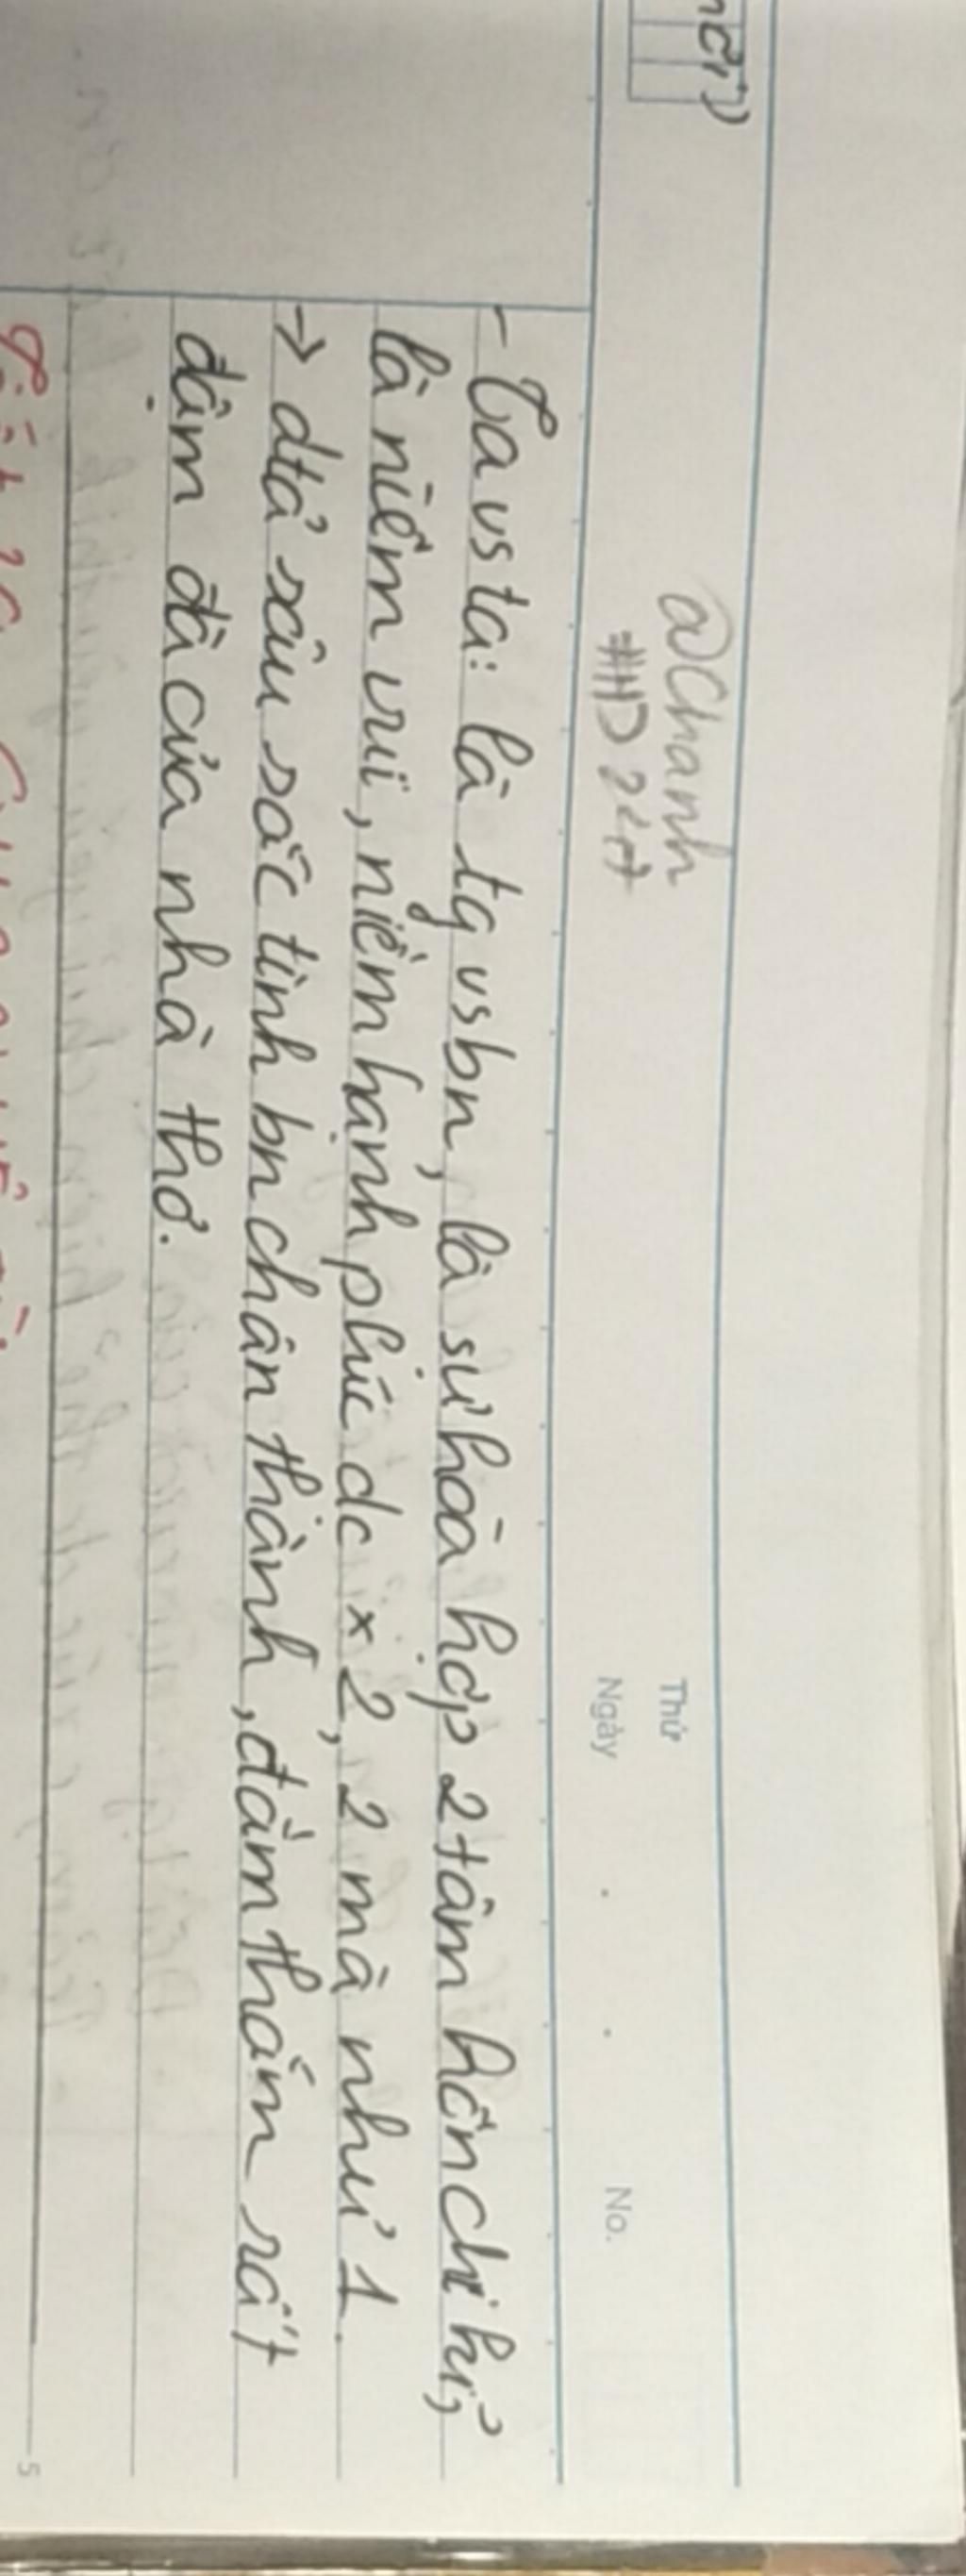 @Chanh
Thứ
Ngày
No.
- Ta vs ta: là tg vs bn, là sự hòa hợp 2 tâm hồn chi kỉ,
là niềm vui, niềm hạnh phúc dc x2, 2 mà như 1.
→ dtả sâu sắc tình bn chân thành, đằm thắm rất
đậm đà của nhà thơ.
5